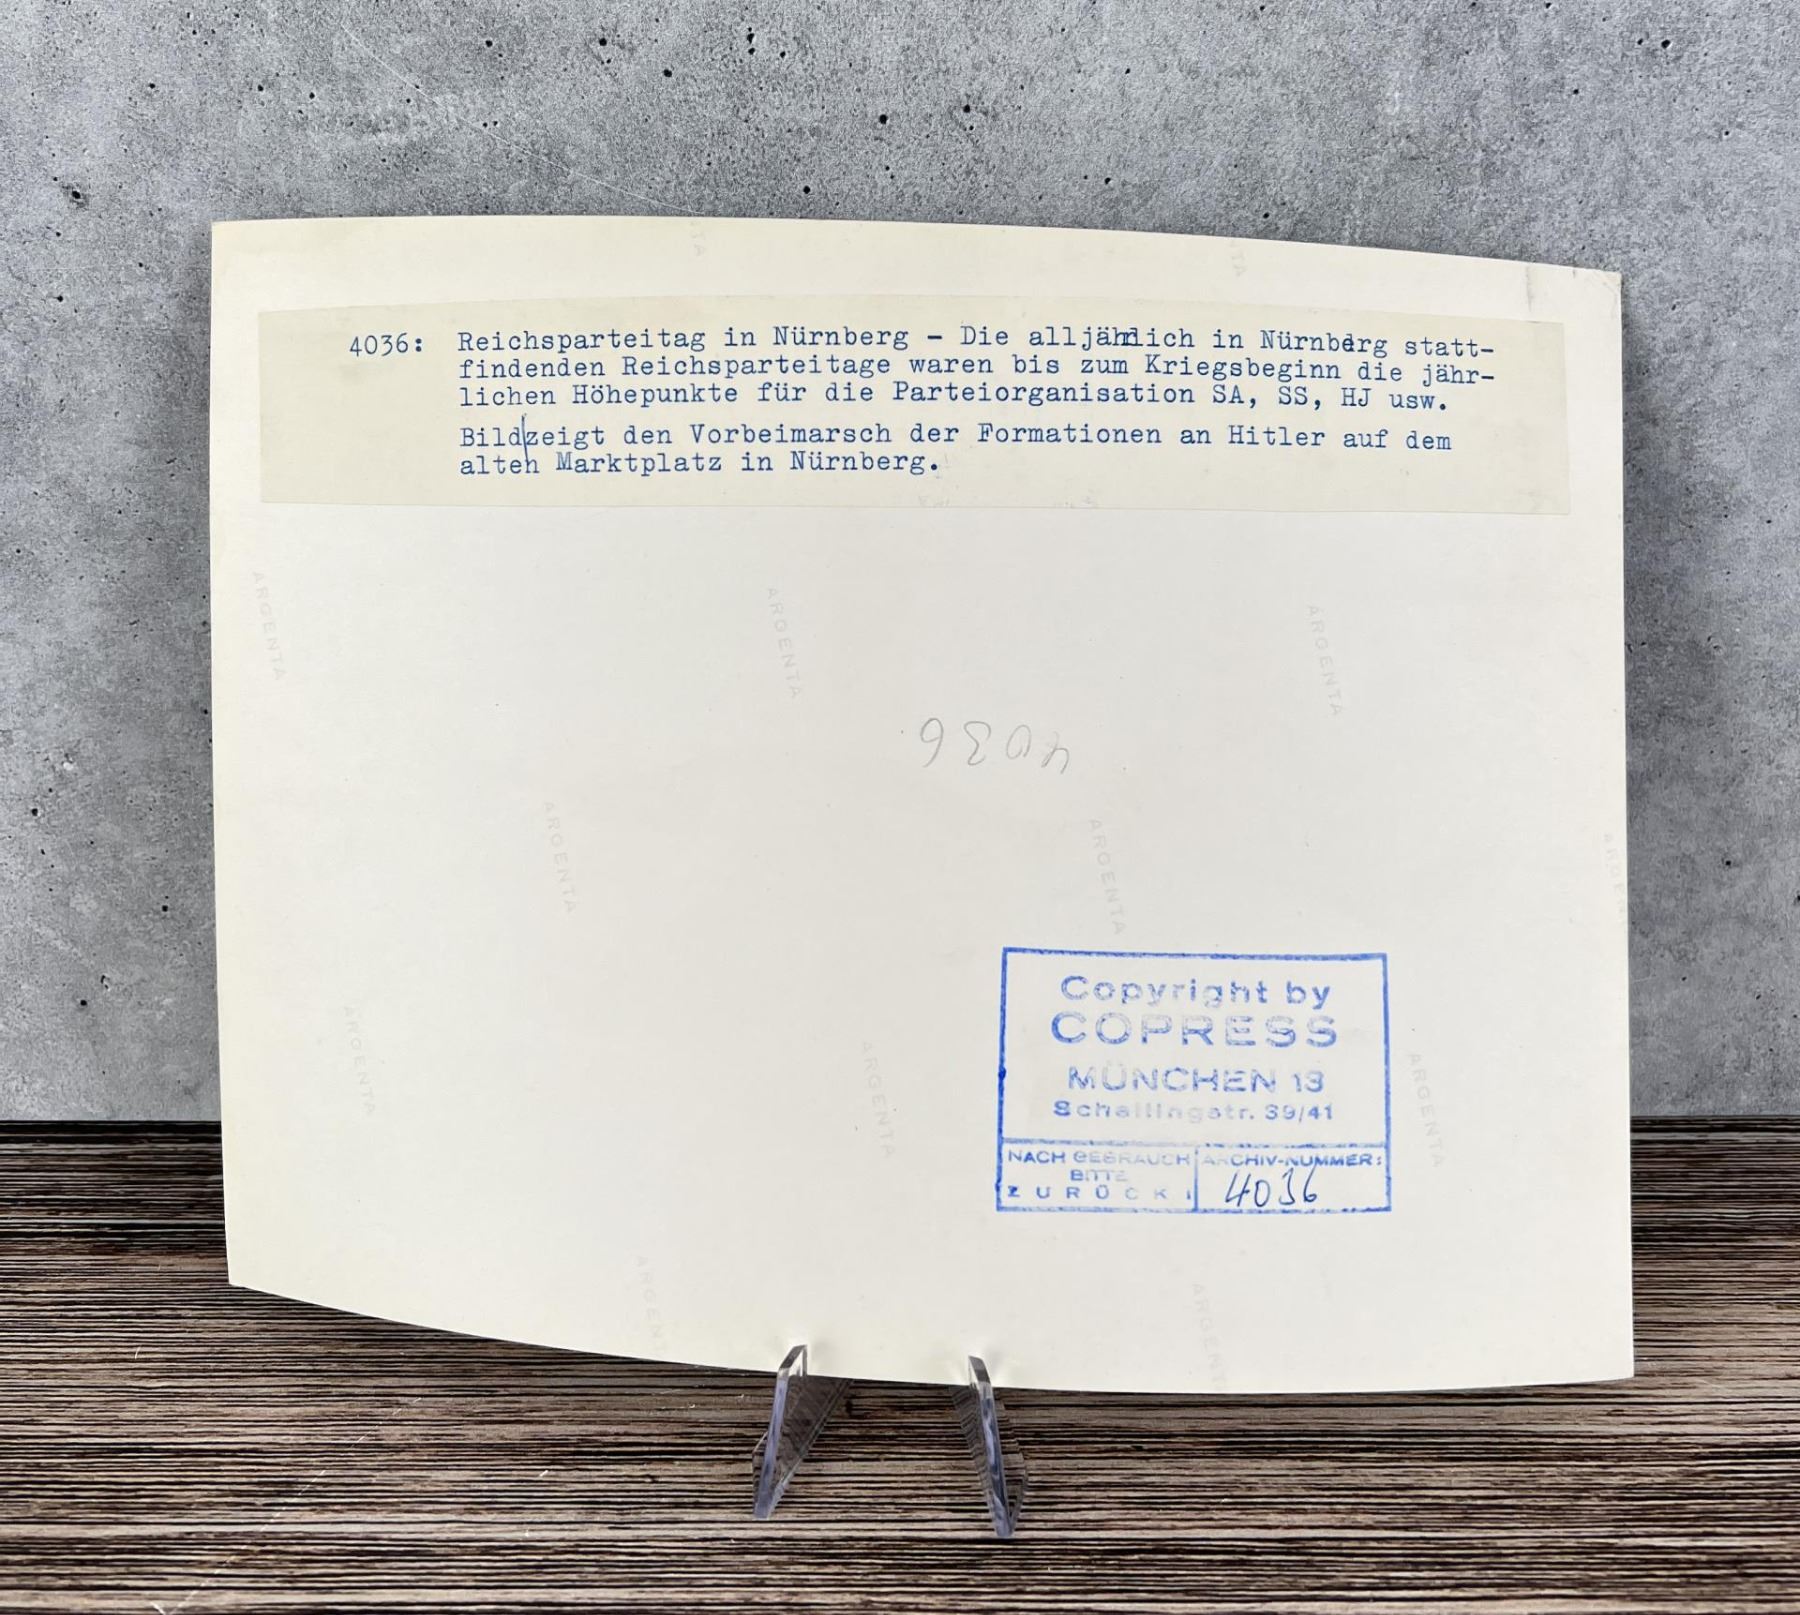 4036: Reichsparteitag in Nürnberg - Die alljährlich in Nürnberg statt-
findenden Reichsparteitage waren bis zum Kriegsbeginn die jähr-
lichen Höhepunkte für die Parteiorganisation SA, SS, HJ usw.
Bild zeigt den Vorbeimarsch der Formationen an Hitler auf dem
alten Marktplatz in Nürnberg.
ARGENTA
ARGENTA
ARGENTA
4036
ARGENTA
ARGENTA
ARGENTA
ARGENTA
ARGENTA
Copyright by
COPRESS
MÜNCHEN 13
Schellingstr. 39/41
NACH GEBRAUCH
BITTE
ZURÜCK!
ARCHIV-NUMMER:
4036
ARGENTA